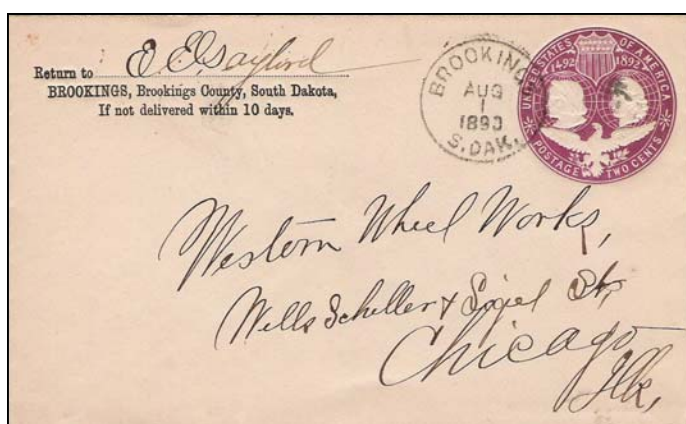 Return to E. E. Gaylord
BROOKINGS, Brookings County, South Dakota,
If not delivered within 10 days.
BROOKINGS
AUG
1
1893
S. DAK.
UNITED STATES OF AMERICA
1492 1892
POSTAGE TWO CENTS
Western Wheel Works,
Wells Schiller & Sigel St,
Chicago
Ills,